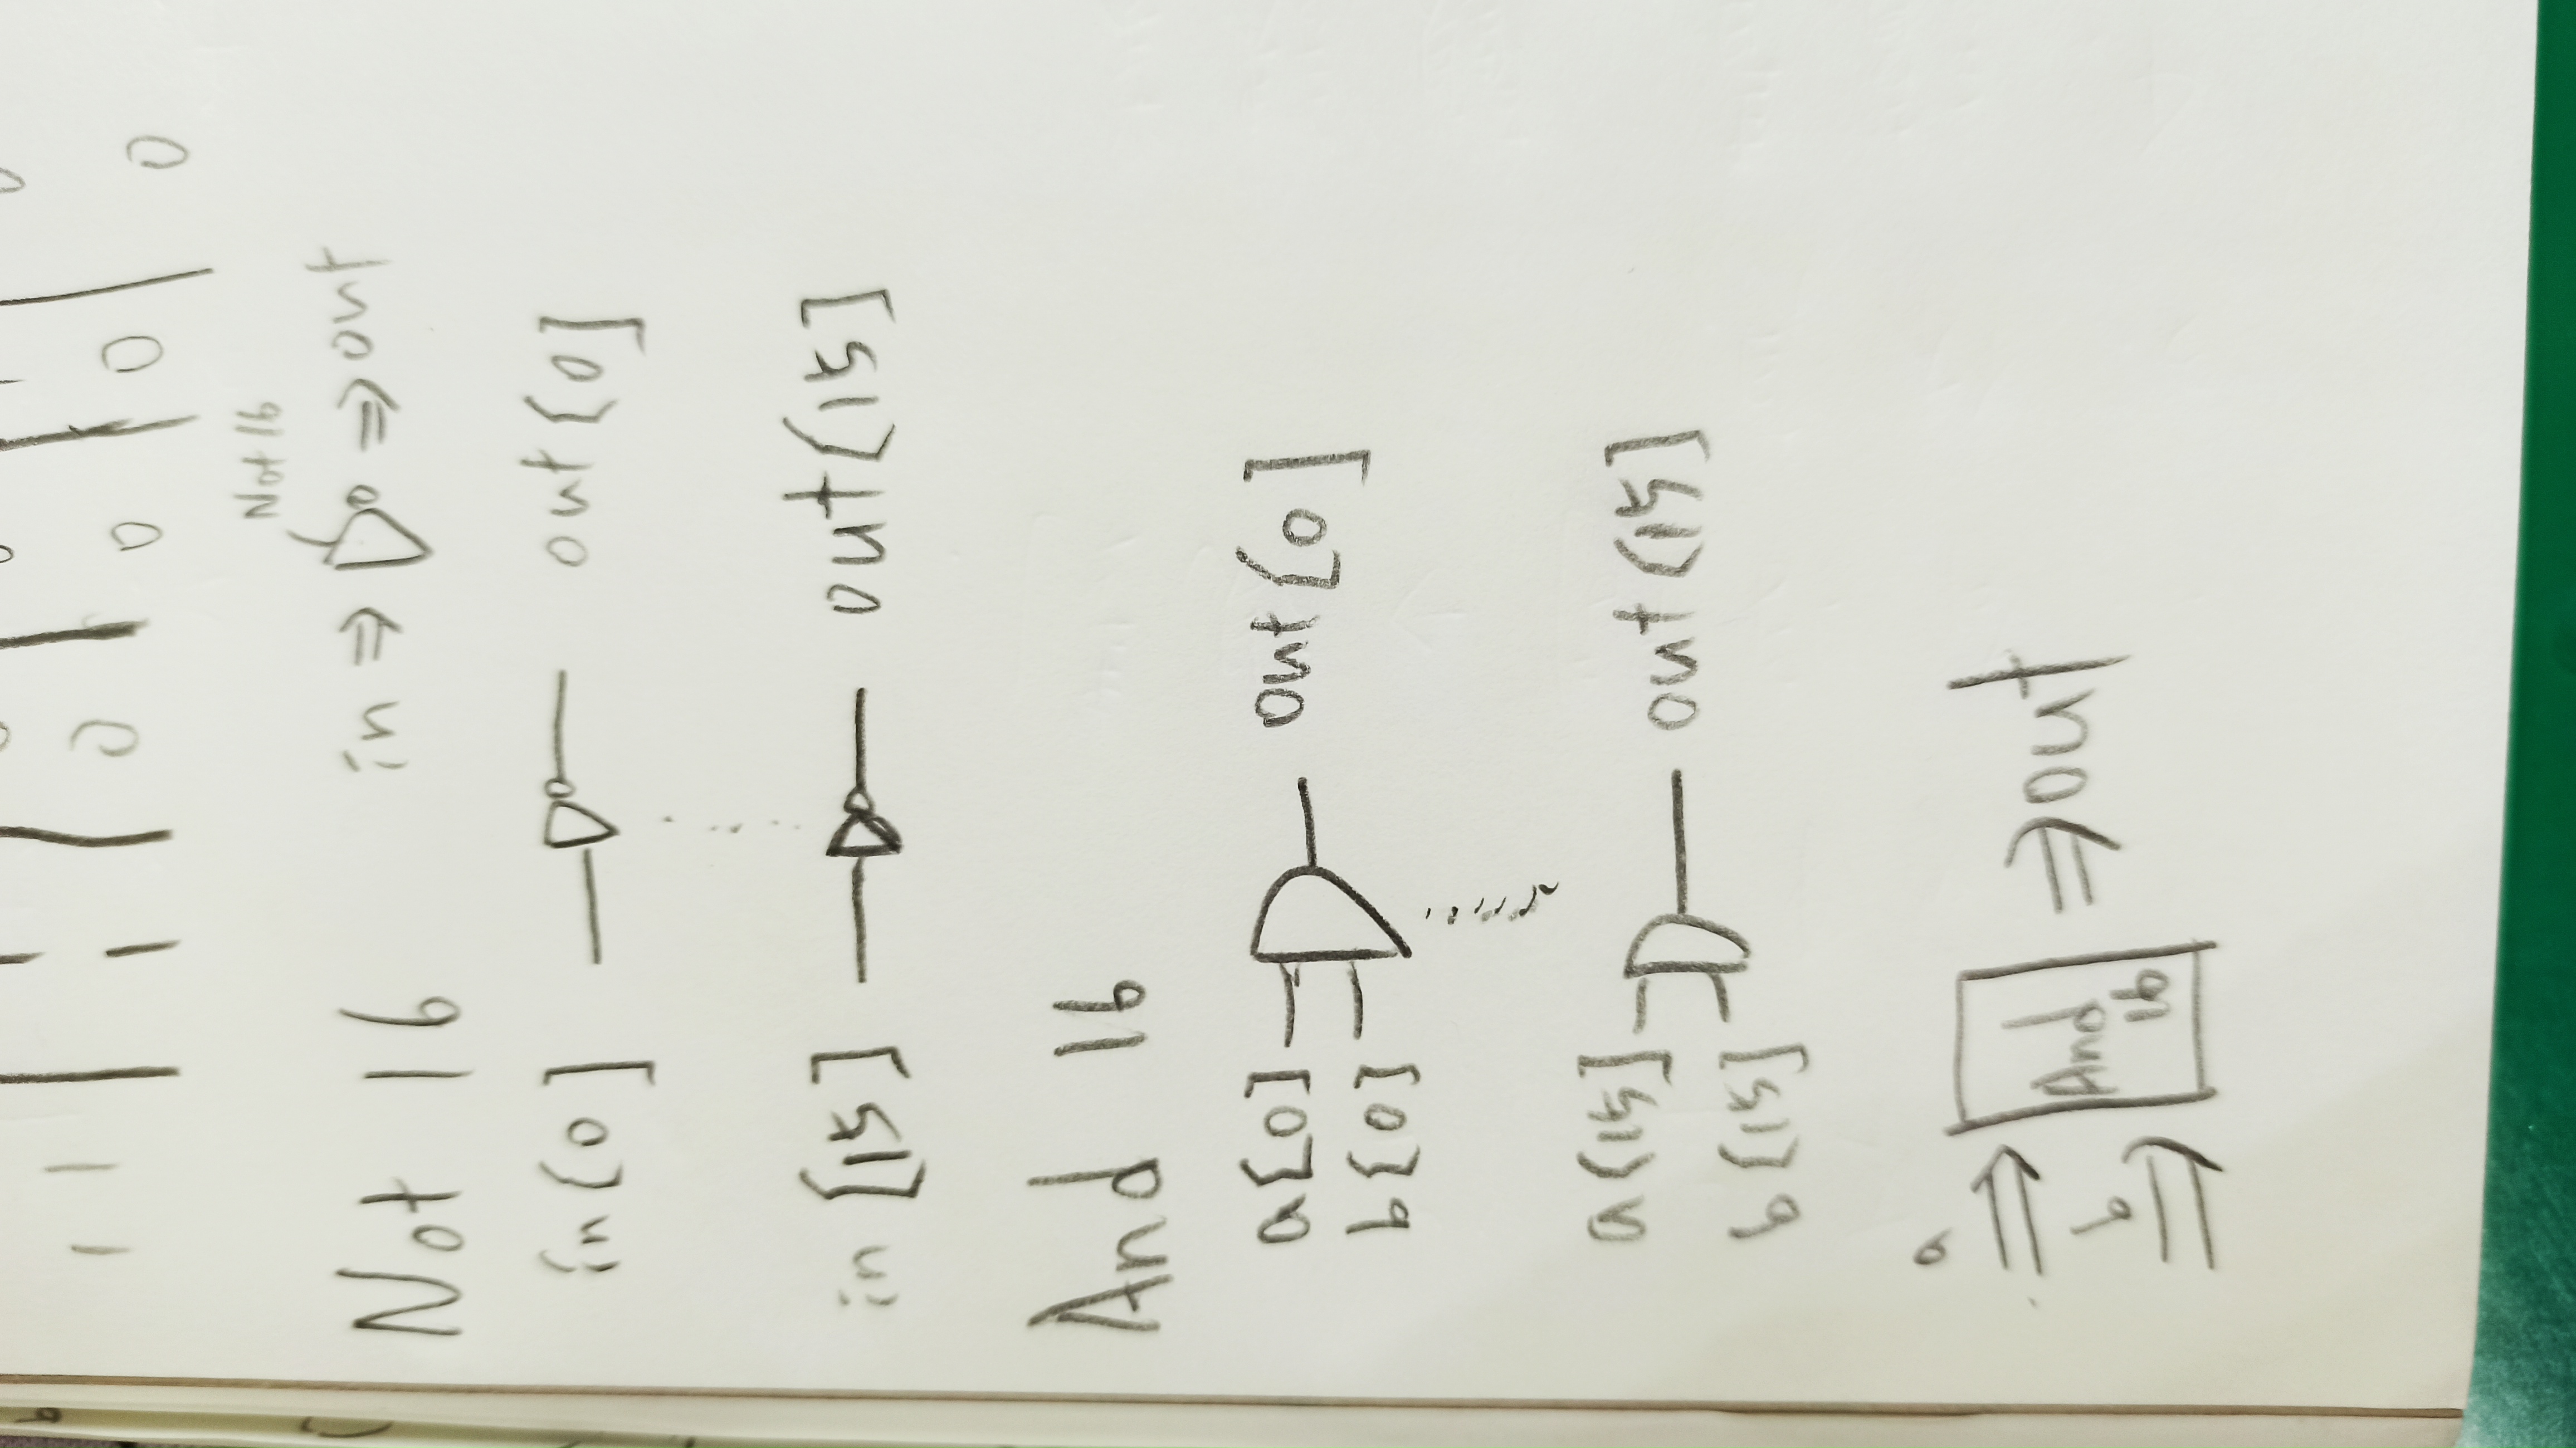 1 1 1 0 0 0 0
Not 16
Not 16 in ⇒ ⇒ out
in[0] out[0]
in[15] out[15]
And 16
a[0] out[0]
b[0]
a[15] out[15]
b[15]
a
b
And
16
⇒ out